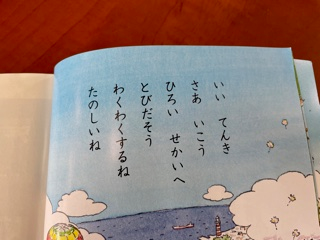 いい　てんき
さあ　いこう
ひろい　せかいへ
とびだそう
わくわくするね
たのしいね